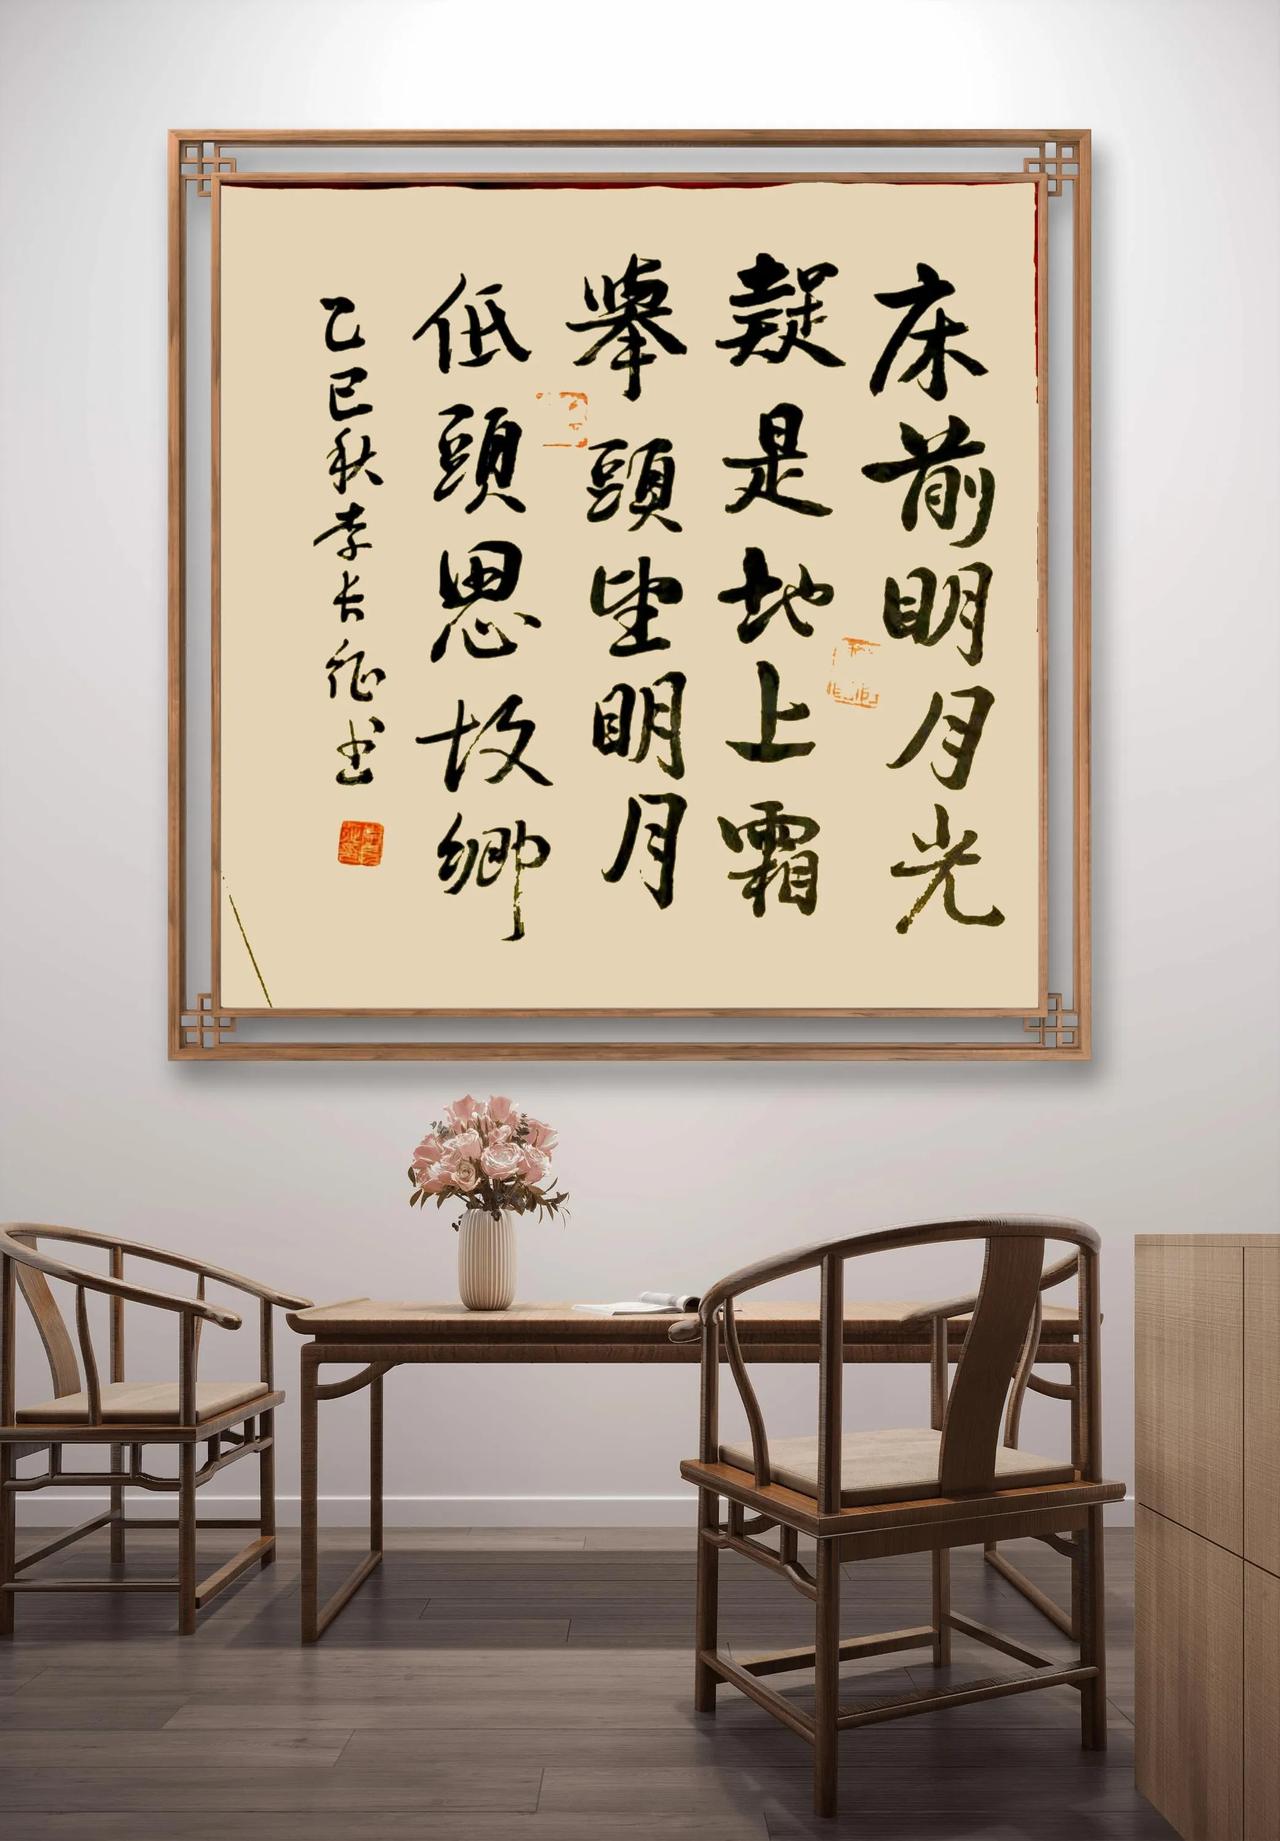 床前明月光
疑是地上霜
舉頭望明月
低頭思故鄉
乙巳秋李长征书